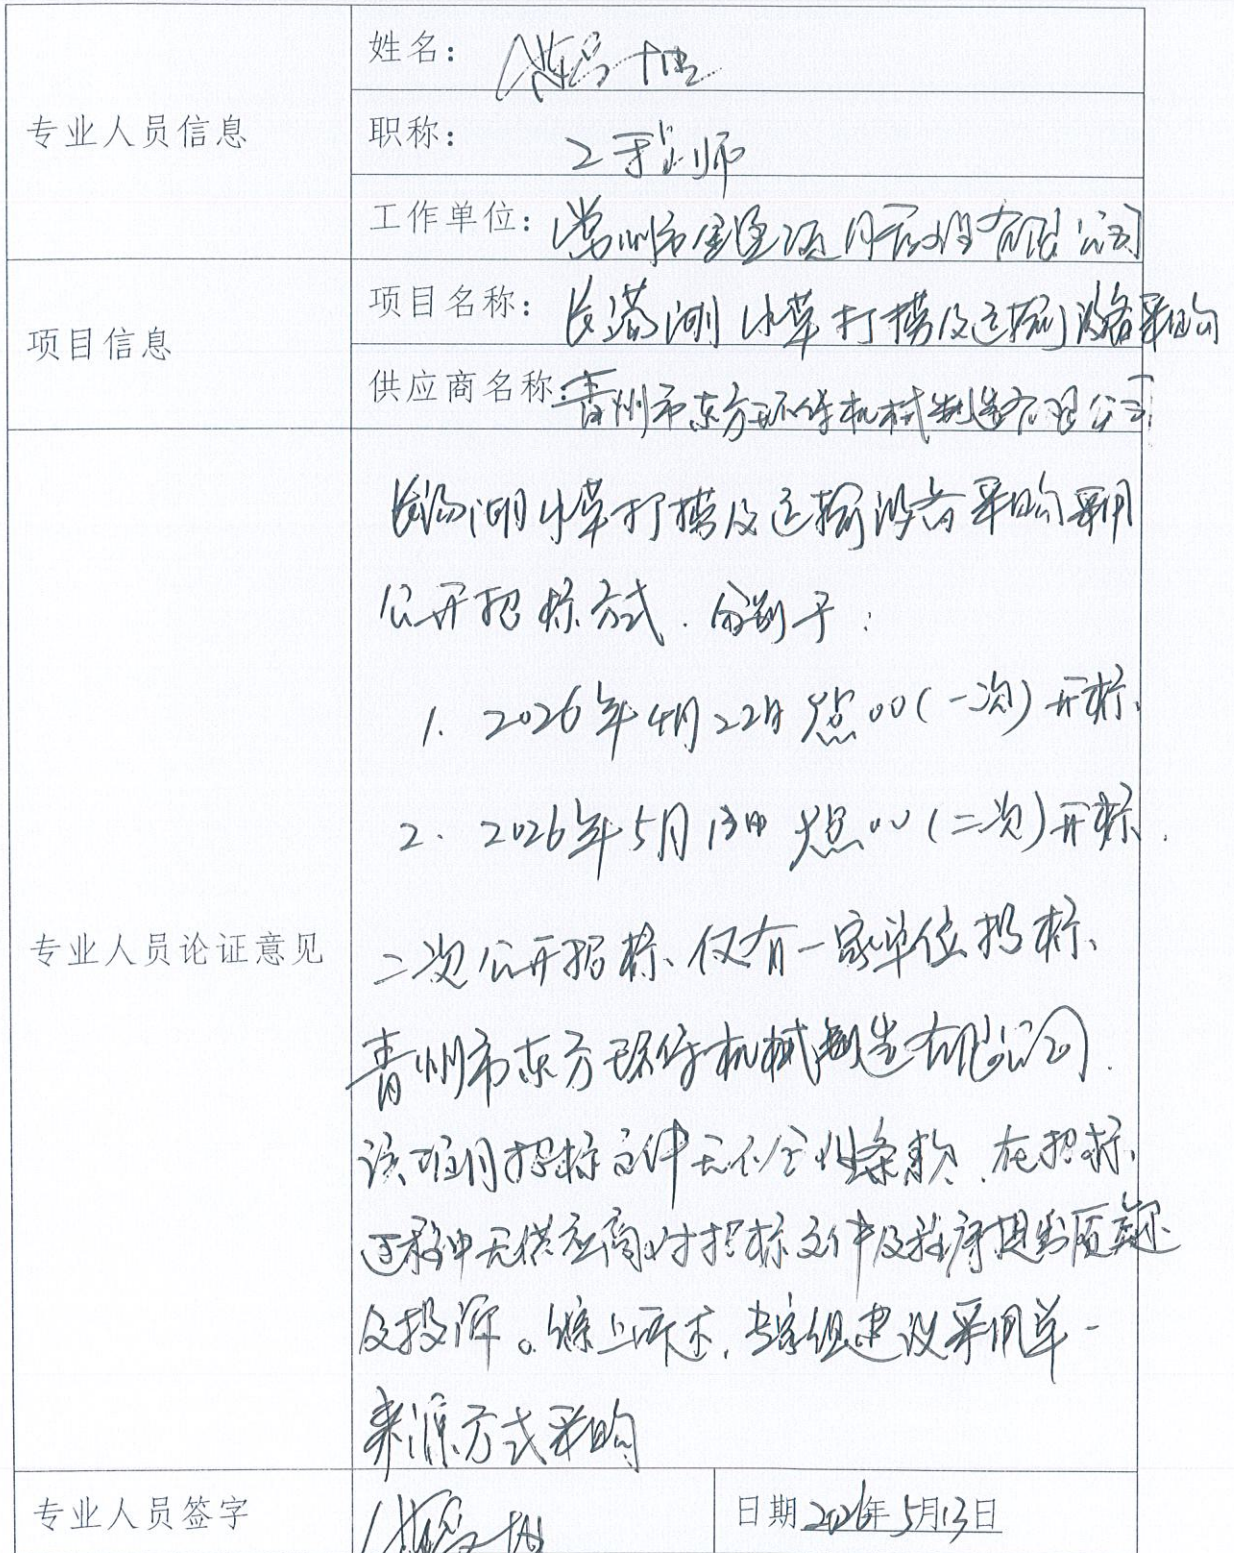 姓名：
专业人员信息
职称： 工程师
工作单位： 常州市金坛项目管理有限公司
项目名称： 长荡湖水草打捞及运输设备采购
项目信息
供应商名称：青州市东方环保机械制造有限公司
长荡湖水草打捞及运输设备采购采用
公开招标方式．分别于：
1. 2026年4月22日 点00（一次）开标、
2. 2026年5月13日 点00（二次）开标．
专业人员论证意见
二次公开招标、仅有一家单位投标、
青州市东方环保机械制造有限公司．
该项目招标文件无不合理条款．在招标
过程中无供应商对招标文件及程序提出质疑
及投诉。综上所述，专家组建议采用单一
来源方式采购
专业人员签字
日期 2026年5月13日